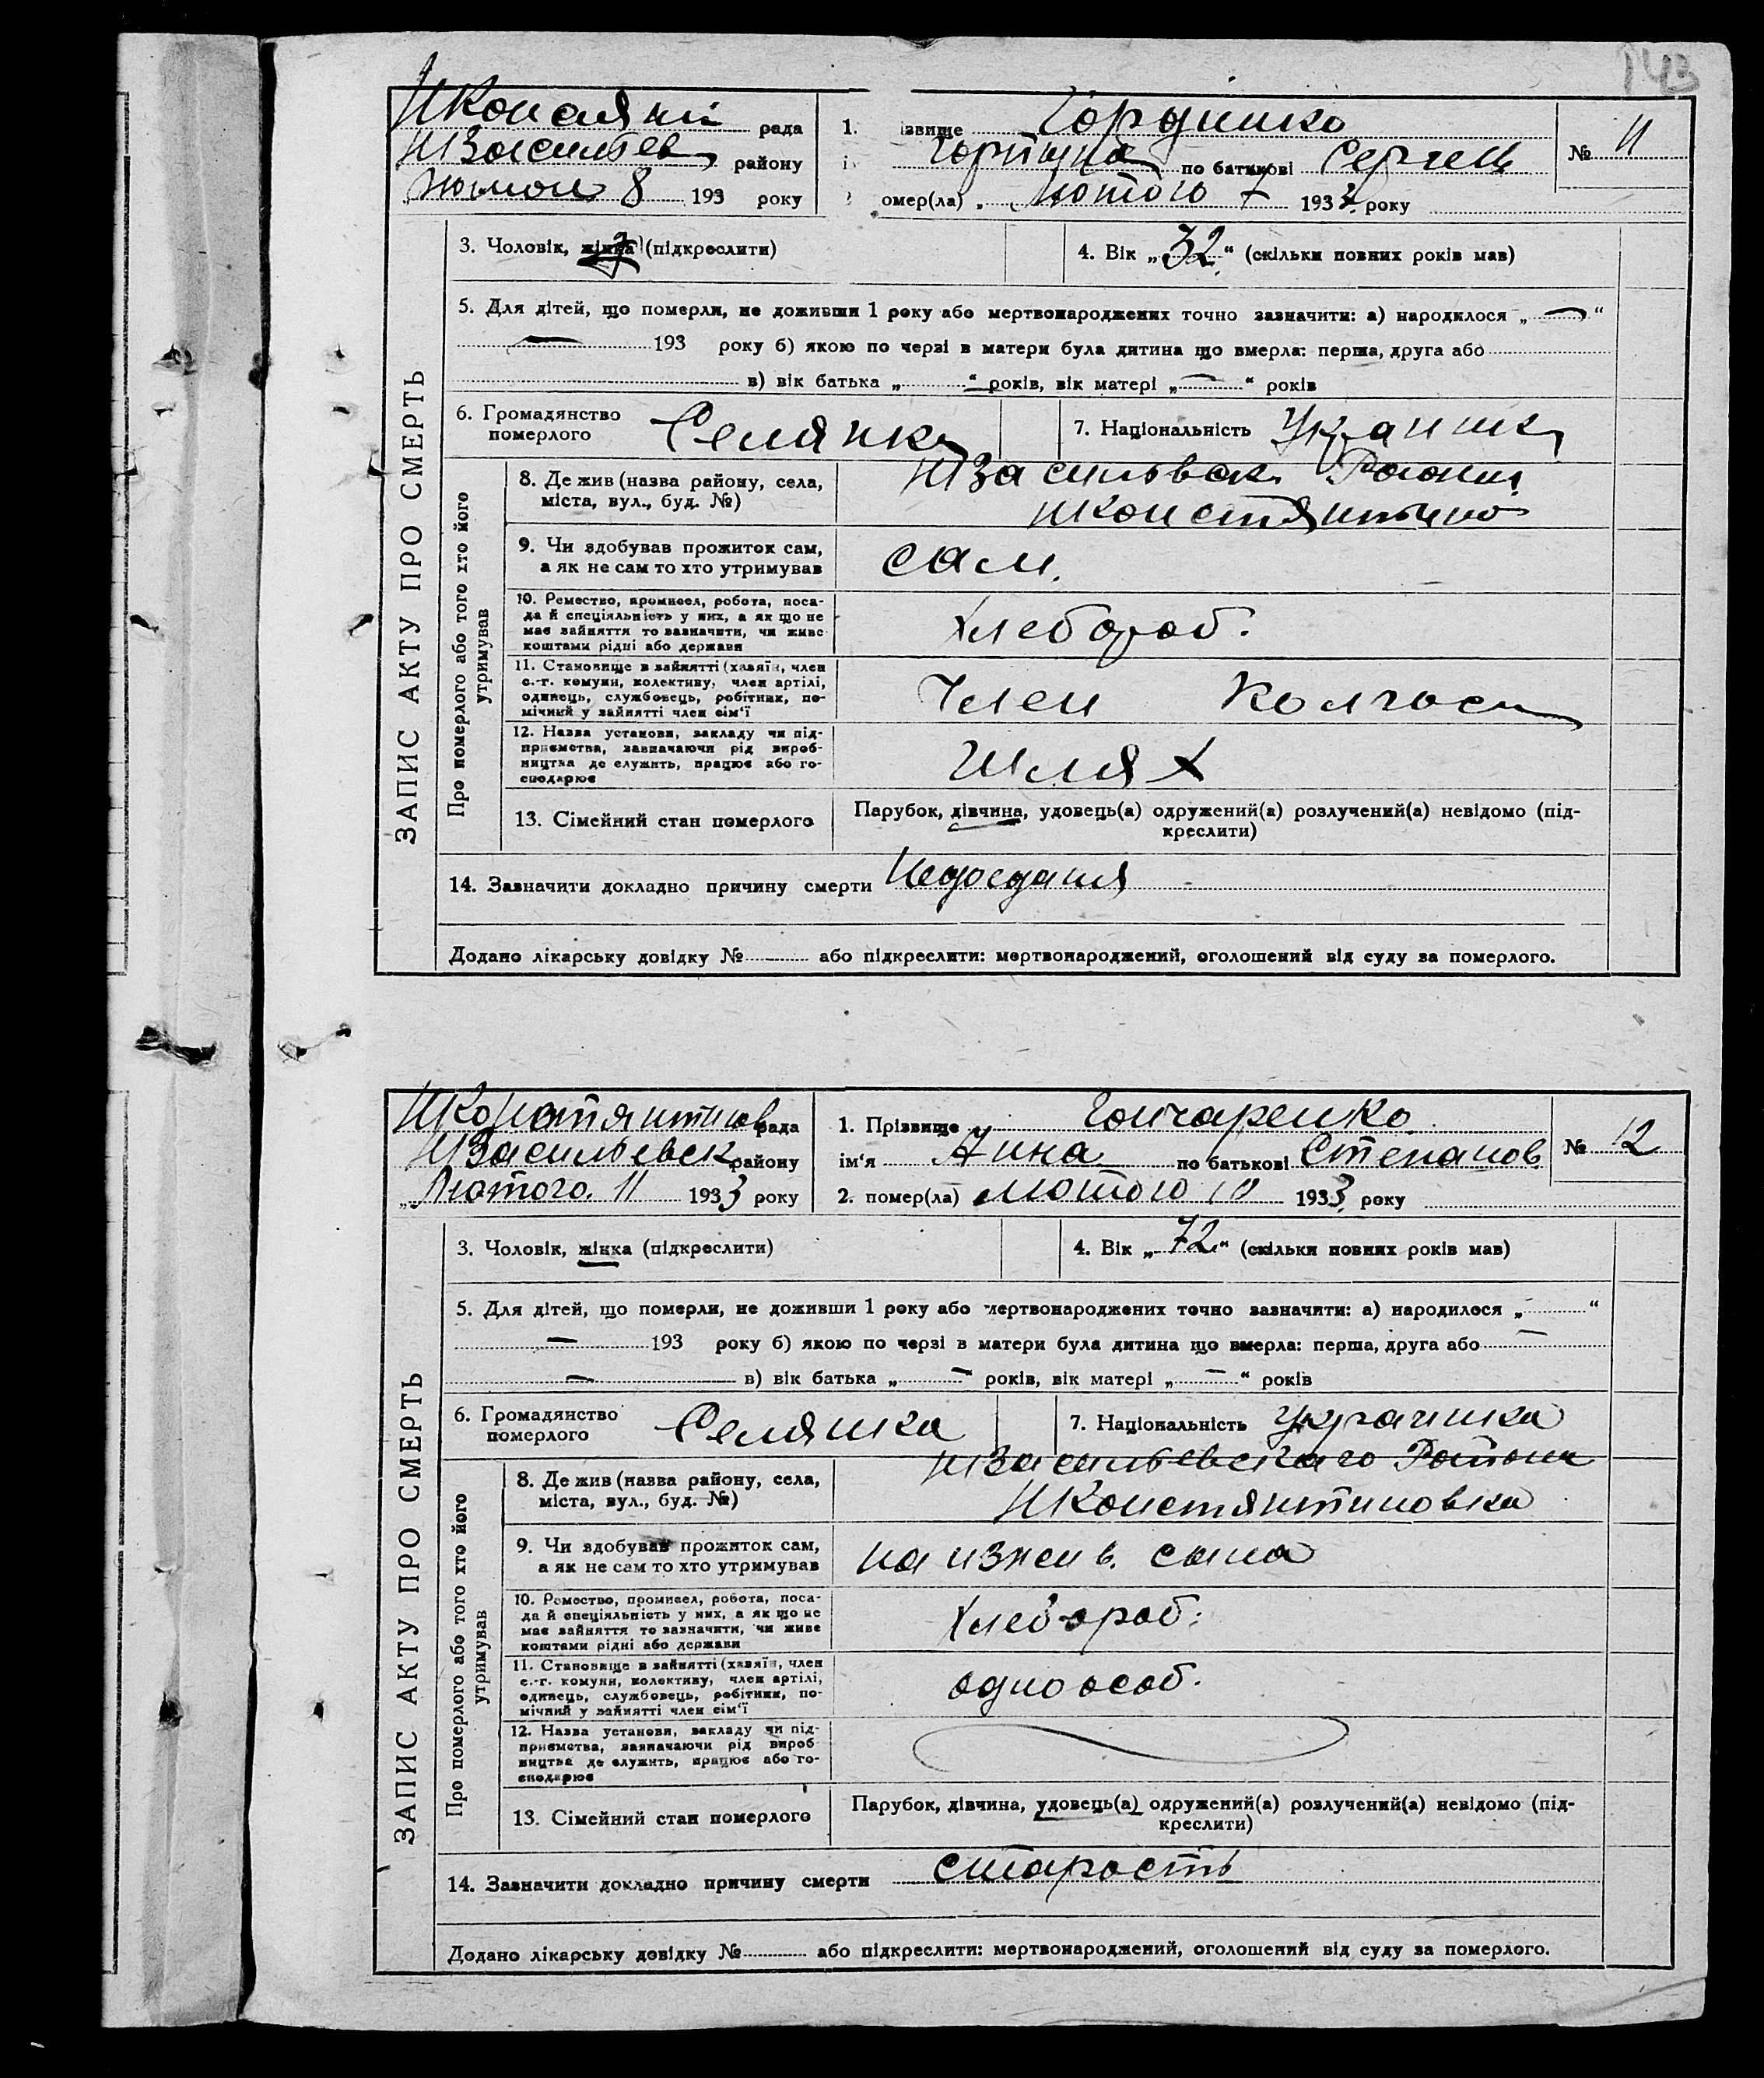 143
рада 1. Гордиенко № 11
НВасильев району Горпина по батькові Сергеев
8 193 року омер(ла) „ лютого 7 193 року
3. Чоловік, жінка (підкреслити) 4. Вік „32“ (скільки повних років мав)
5. Для дітей, що померли, не доживши 1 року або мертвонароджених точно зазначити: а) народилося „ — “
— 193 року б) якою по черзі в матери була дитина що вмерла: перша, друга або
в) вік батька „ “ років, вік матері „ — “ років
6. Громадянство померлого Селянка 7. Національність Украинка
ЗАПИС АКТУ ПРО СМЕРТЬ
Про померлого або того хто його утримував
8. Де жив (назва району, села, НВасильевск. Района
міста, вул., буд. №)
9. Чи здобував прожиток сам, сам.
а як не сам то хто утримував
10. Ремество, промисел, робота, поса-
да й спеціяльність у них, а як що не Хлебороб.
має зайняття то зазначити, чи живе
коштами рідні або держави
11. Становище в зайнятті (хазяїн, член
с.-г. комуни, колективу, член артілі, Член Колгосп
одинець, службовець, робітник, по-
мічний у зайнятті член сім‘ї
12. Назва установи, закладу чи під-
приємства, зазначаючи рід вироб- Шлях
ництва де служить, працює або го-
сподарює
13. Сімейний стан померлого Парубок, дівчина, удовець(а) одружений(а) розлучений(а) невідомо (під-
креслити)
14. Зазначити докладно причину смерти Недоедания
Додано лікарську довідку № або підкреслити: мертвонароджений, оголошений від суду за померлого.
НКонстянтинов рада 1. Прізвище Гончаренко № 12
НВасильевск району ім‘я Анна по батькові Степанов
„Лютого. 11 1933 року 2. помер(ла) лютого 10 1933 року
3. Чоловік, жінка (підкреслити) 4. Вік „72“ (скільки повних років мав)
5. Для дітей, що померли, не доживши 1 року або мертвонароджених точно зазначити: а) народилося „ “
— 193 року б) якою по черзі в матери була дитина що вмерла: перша, друга або —
— в) вік батька „ — “ років, вік матері „ — “ років
6. Громадянство померлого Селянка 7. Національність Украинка
ЗАПИС АКТУ ПРО СМЕРТЬ
Про померлого або того хто його утримував
8. Де жив (назва району, села, НВасильевского Района
міста, вул., буд. №) НКонстянтиновка
9. Чи здобував прожиток сам, на ижев. сина
а як не сам то хто утримував
10. Ремество, промисел, робота, поса-
да й спеціяльність у них, а як що не Хлебороб.
має зайняття то зазначити, чи живе
коштами рідні або держави
11. Становище в зайнятті (хазяїн, член
с.-г. комуни, колективу, член артілі, одноособ.
одинець, службовець, робітник, по-
мічний у зайнятті член сім‘ї
12. Назва установи, закладу чи під-
приємства, зазначаючи рід вироб-
ництва де служить, працює або го-
сподарює
13. Сімейний стан померлого Парубок, дівчина, удовець(а) одружений(а) розлучений(а) невідомо (під-
креслити)
14. Зазначити докладно причину смерти старость
Додано лікарську довідку № або підкреслити: мертвонароджений, оголошений від суду за померлого.